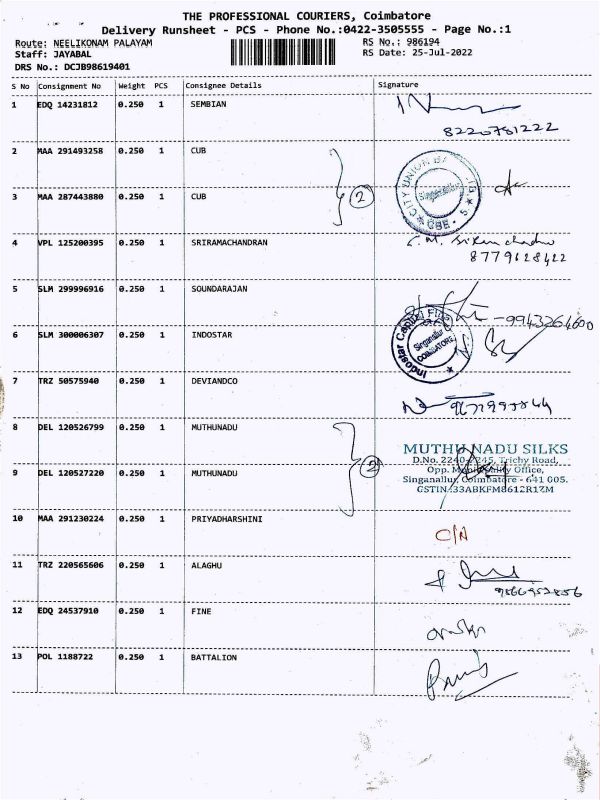 THE PROFESSIONAL COURIERS, Coimbatore
Delivery Runsheet - PCS - Phone No.:0422-3505555 - Page No.:1
Route: NEELIKONAM PALAYAM RS No.: 986194
Staff: JAYABAL RS Date: 25-Jul-2022
DRS No.: DCJB98619401
S No Consignment No Weight PCS Consignee Details Signature
1 EDQ 14231812 0.250 1 SEMBIAN
8220781222
2 MAA 291493258 0.250 1 CUB
CITY UNION
Singanallur
CBE - 5
3 MAA 287443880 0.250 1 CUB
2
4 VPL 125200395 0.250 1 SRIRAMACHANDRAN
5 SLM 299996916 0.250 1 SOUNDARAJAN
9943264600
6 SLM 300006307 0.250 1 INDOSTAR
Indostar Capital Fin
Singanallur
COIMBATORE
7 TRZ 50575940 0.250 1 DEVIANDCO
8 DEL 120526799 0.250 1 MUTHUNADU
MUTHU NADU SILKS
D.No. 2240-2245, Trichy Road,
Opp. Municipality Office,
Singanallur, Coimbatore - 641 005.
GSTIN:33ABKFM8612R1ZM
9 DEL 120527220 0.250 1 MUTHUNADU
2
10 MAA 291230224 0.250 1 PRIYADHARSHINI
C/N
11 TRZ 220565606 0.250 1 ALAGHU
12 EDQ 24537910 0.250 1 FINE
13 POL 1188722 0.250 1 BATTALION